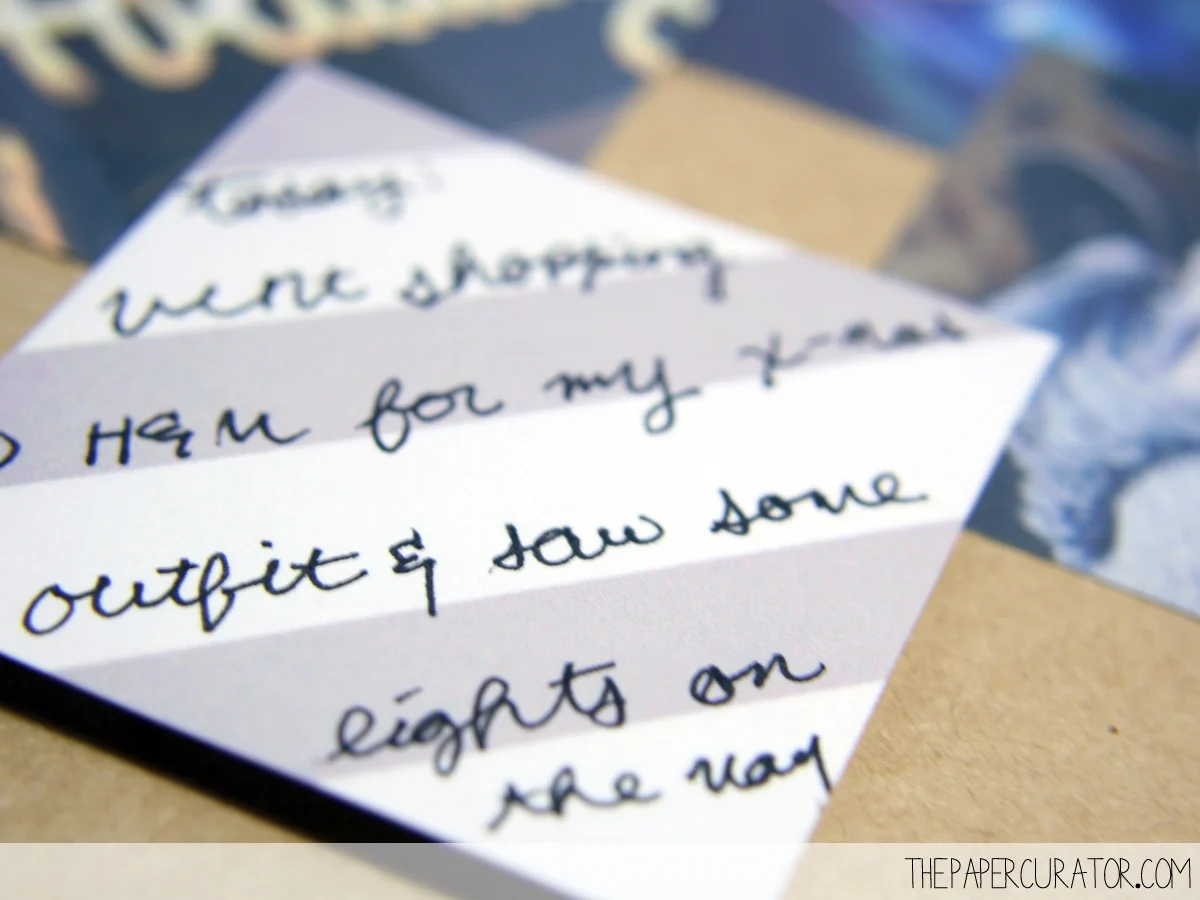 today:
went shopping
H&M for my x-mas
outfit & saw some
lights on
the way
THEPAPERCURATOR.COM